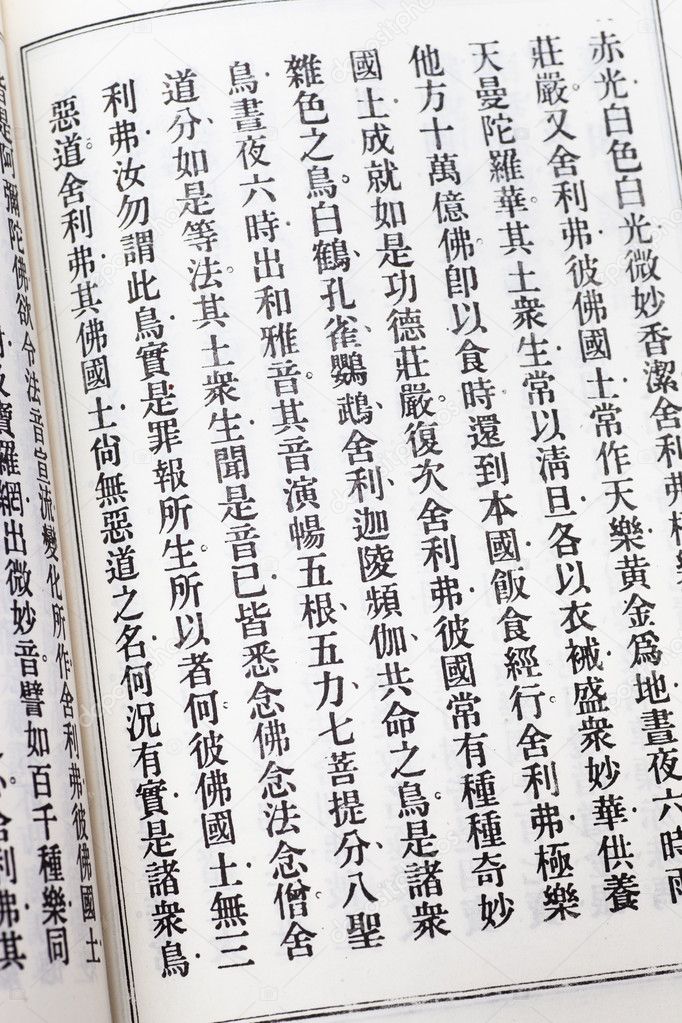 赤光白色白光微妙香潔舍利弗極樂
莊嚴。又舍利弗.彼佛國土.常作天樂.黃金爲地.晝夜六時.雨
天曼陀羅華。其土衆生.常以淸旦.各以衣祴.盛衆妙華.供養
他方十萬億佛。卽以食時.還到本國.飯食經行。舍利弗.極樂
國土.成就如是功德莊嚴。復次舍利弗.彼國常有種種奇妙
雜色之鳥。白鶴、孔雀、鸚鵡、舍利、迦陵頻伽、共命之鳥。是諸衆
鳥.晝夜六時.出和雅音.其音演暢五根、五力、七菩提分、八聖
道分、如是等法。其土衆生.聞是音已.皆悉念佛念法念僧.舍
利弗.汝勿謂此鳥.實是罪報所生。所以者何.彼佛國土.無三
惡道。舍利弗.其佛國土.尙無惡道之名.何況有實.是諸衆鳥.
皆是阿彌陀佛.欲令法音宣流.變化所作.舍利弗.彼佛國土
寶羅網.出微妙音。譬如百千種樂.同
舍利弗.其